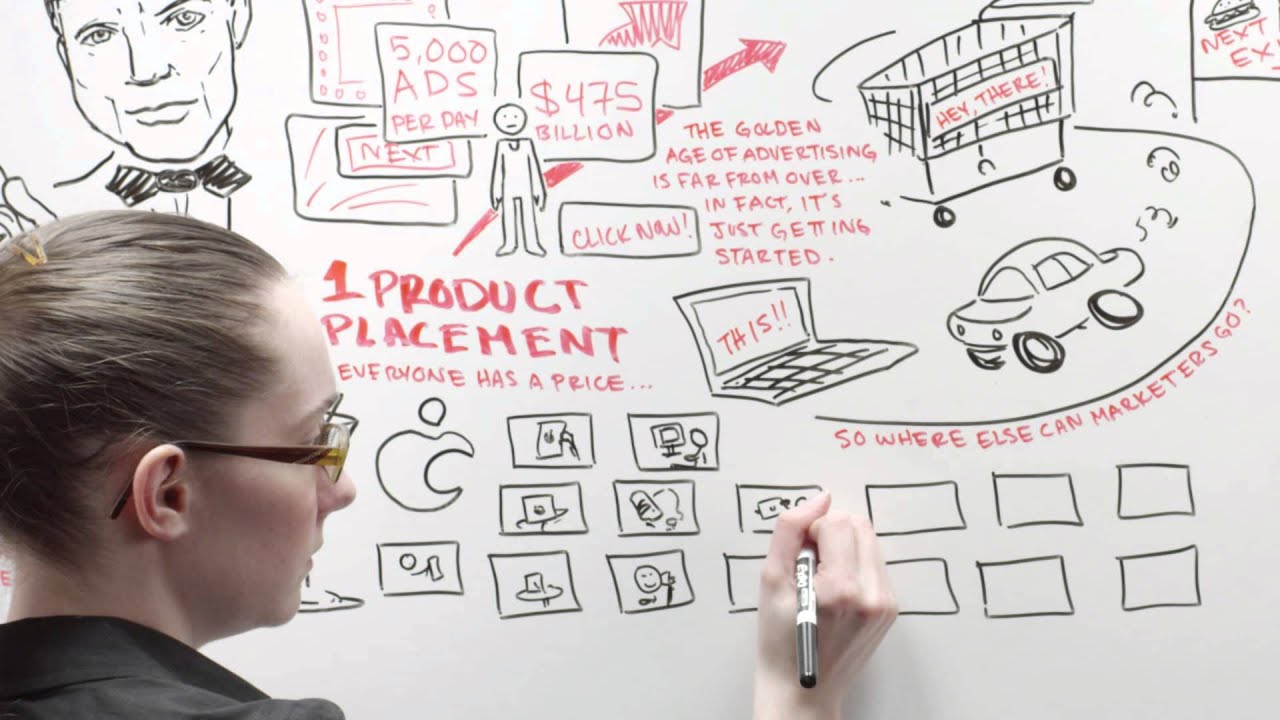 5,000
ADS
PER DAY
$475
BILLION
NEXT
CLICK NOW!
THE GOLDEN
AGE OF ADVERTISING
IS FAR FROM OVER...
IN FACT, IT'S
JUST GETTING
STARTED.
HEY, THERE!
NEXT
1 PRODUCT
PLACEMENT
EVERYONE HAS A PRICE...
THIS!!
SO WHERE ELSE CAN MARKETERS GO?
EXPO